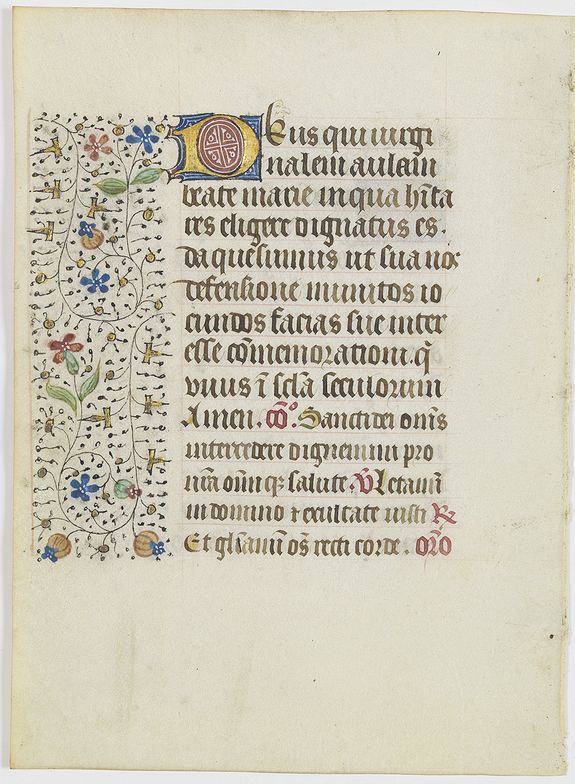 Deus qui uirgi
nalem aulam
beate marie in qua hīta
res eligere dignatus es.
da quesumus ut sua nos
defensione munitos io
cundos facias sue inter
esse cōmemorationi. q̄
viuis ī scl̄a seculorum
Amen. cō⁰. Sancti dei om̄s
intercedere dignemini pro
nr̄a om̄iūqꝫ salute ℣ Letamī
in domino ⁊ exultate iusti ℟
Et gl̄iamī oēs recti corde. or̄o